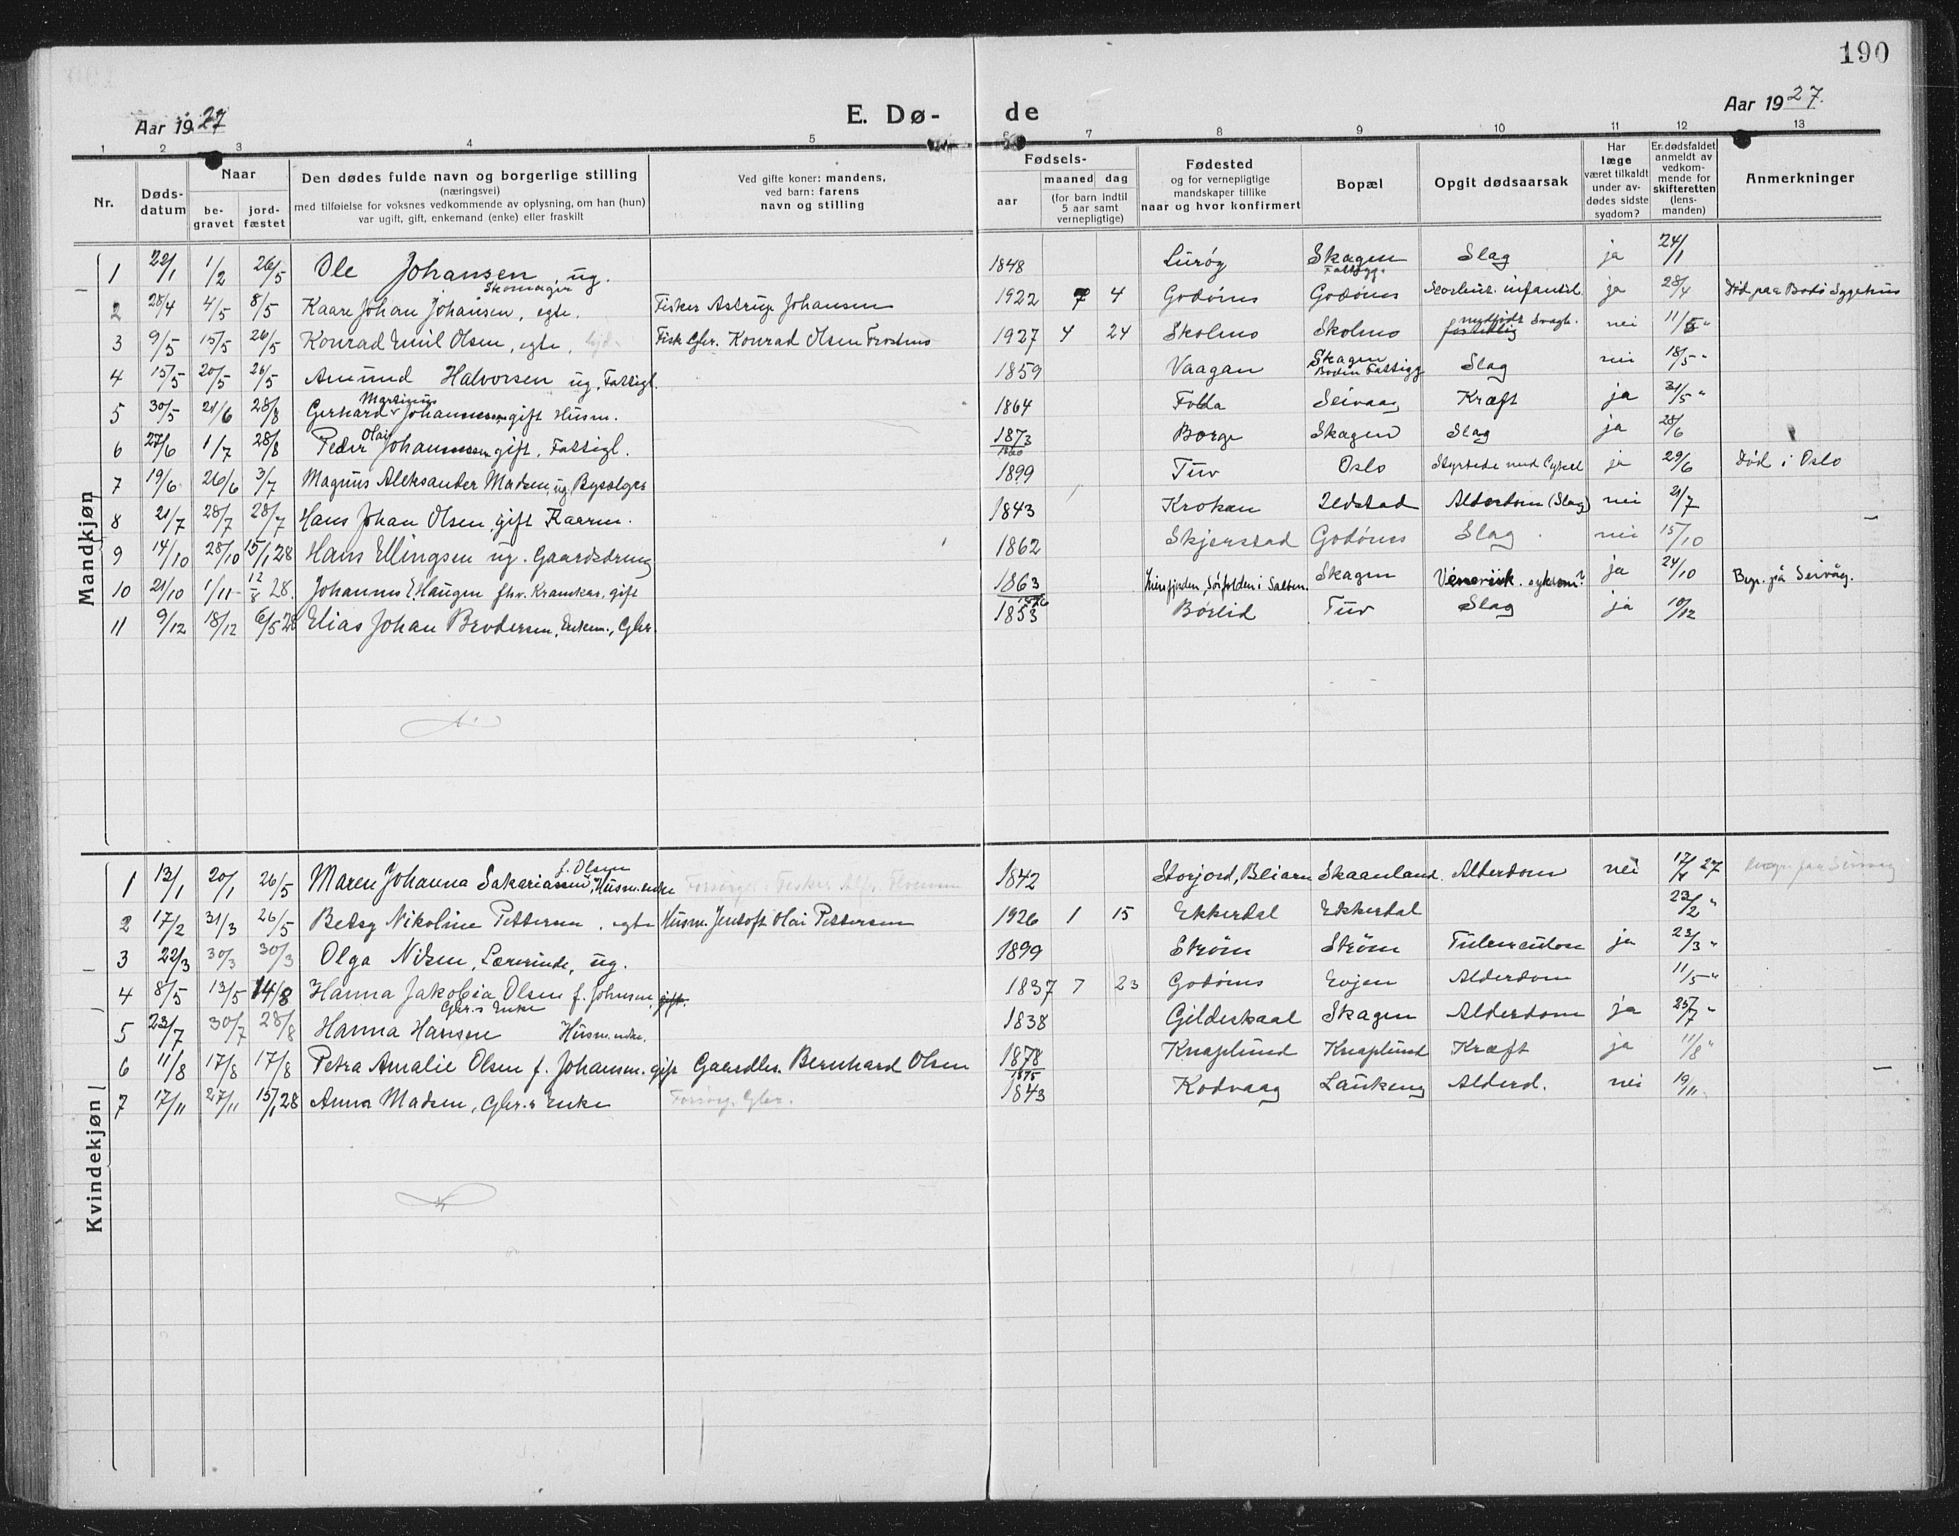 190
Aar 1927
E. Dø-
de
Aar 1927.
1 2 3 4 5 6 7 8 9 10 11 12 13
Nr.
Døds-
datum
Naar
be-
gravet
jord-
fæstet
Den dødes fulde navn og borgerlige stilling
(næringsvei)
med tilføielse for voksnes vedkommende av oplysning, om han (hun)
var ugift, gift, enkemand (enke) eller fraskilt
Ved gifte koner: mandens,
ved barn: farens
navn og stilling
Fødsels-
aar
maaned dag
(for barn indtil
5 aar samt
vernepligtige)
Fødested
og for vernepligtige
mandskaper tillike
naar og hvor konfirmert
Bopæl
Opgit dødsaarsak
Har
læge
været tilkaldt
under av-
dødes sidste
sygdom?
Er dødsfaldet
anmeldt av
vedkom-
mende for
skifteretten
(lens-
manden)
Anmerkninger
Mandkjøn
1 22/1 1/2 26/5 Ole Johansen, ug. Skomager 1848 Lurøy Skagen Fattigg. Slag ja 24/1
2 28/4 4/5 8/5 Kaare Johan Johansen, egte. Fisker Astrup Johansen 1922 7 4 Godønes Godønes infantil. ja 28/4 Død paa Bodø Sygehus
3 9/5 15/5 26/5 Konrad Emil Olsen, egte, Konrad Olsen 1927 4 24 Skolmo Skolmo medfødt Svagh. nei 11/5 "
4 15/5 20/5 26/5 Amund Halvorsen ug. Fattigl. 1859 Vaagan Skagen Bodin Fattigg Slag nei 18/5 "
5 30/5 21/6 28/8 Gerhard Martinus Johannessen, gift Husm. 1864 Folda Seivaag Kræft ja 31/5 "
6 27/6 1/7 28/8 Peder Olai Johannessen gift, Fattigl. 1873 1860 Borge Skagen Slag ja 28/6
7 19/6 26/6 3/7 Magnus Aleksander Madsen, ug. 1899 Tuv Oslo Styrtede med Cykel ja 29/6 Død i Oslo
8 21/7 28/7 28/7 Hans Johan Olsen, gift Kaarm. 1843 Krokan Ildstad Alderdom (Slag) nei 21/7
9 14/10 28/10 15/1 28 Hans Ellingsen ug. Gaardsdreng 1862 Skjerstad Godønes Slag. nei 15/10
10 21/10 1/11 12/8 28. Johannes E. Haugen fhv. Kramkar, gift 1863 Sørfolden i Salten. Skagen Venerisk. sykdom? ja 24/10 Begr. på Seivåg.
11 9/12 18/12 6/5 28 Elias Johan Brodersen, Enkem., Gbr. 1853 Børlid Tuv Slag ja 10/12
Kvindekjøn
1 13/1 20/1 26/5 Maren Johanna Sakariassen, f. Olsen Husm. enke 1842 Storjord, Beiarn Skaanland. Alderdom nei 17/1 27
2 17/2 31/3 26/5 Betsy Nikoline Pettersen. egte Husm. Jentoft Olai Pettersen 1926 1 15 Ekkerdal Ekkerdal 23/2 "
3 22/3 30/3 30/3 Olga Nilsen, Lærerinde, ug. 1899 Strøm Strøm Tuberculose ja 23/3 "
4 8/5 13/5 14/8 Hanna Jakobia Olsen f. Johnsen, gift. Gbr.s Enke 1837 7 23 Godønes Evjen Alderdom 11/5 "
5 23/7 30/7 28/8 Hanna Hansen Husm. enke. 1838 Gildeskaal Skagen Alderdom ja 25/7 "
6 11/8 17/8 17/8 Petra Amalie Olsen f. Johansen. gift Gaardbr. Bernhard Olsen 1878 1875 Knaplund Knaplund Kræft ja 11/8 "
7 17/11 27/11 15/1 28 Anna Madsen, Gbr.s Enke Forsørg. Gbr. 1843 Kodvaag Løukeng Alderd. nei 19/11